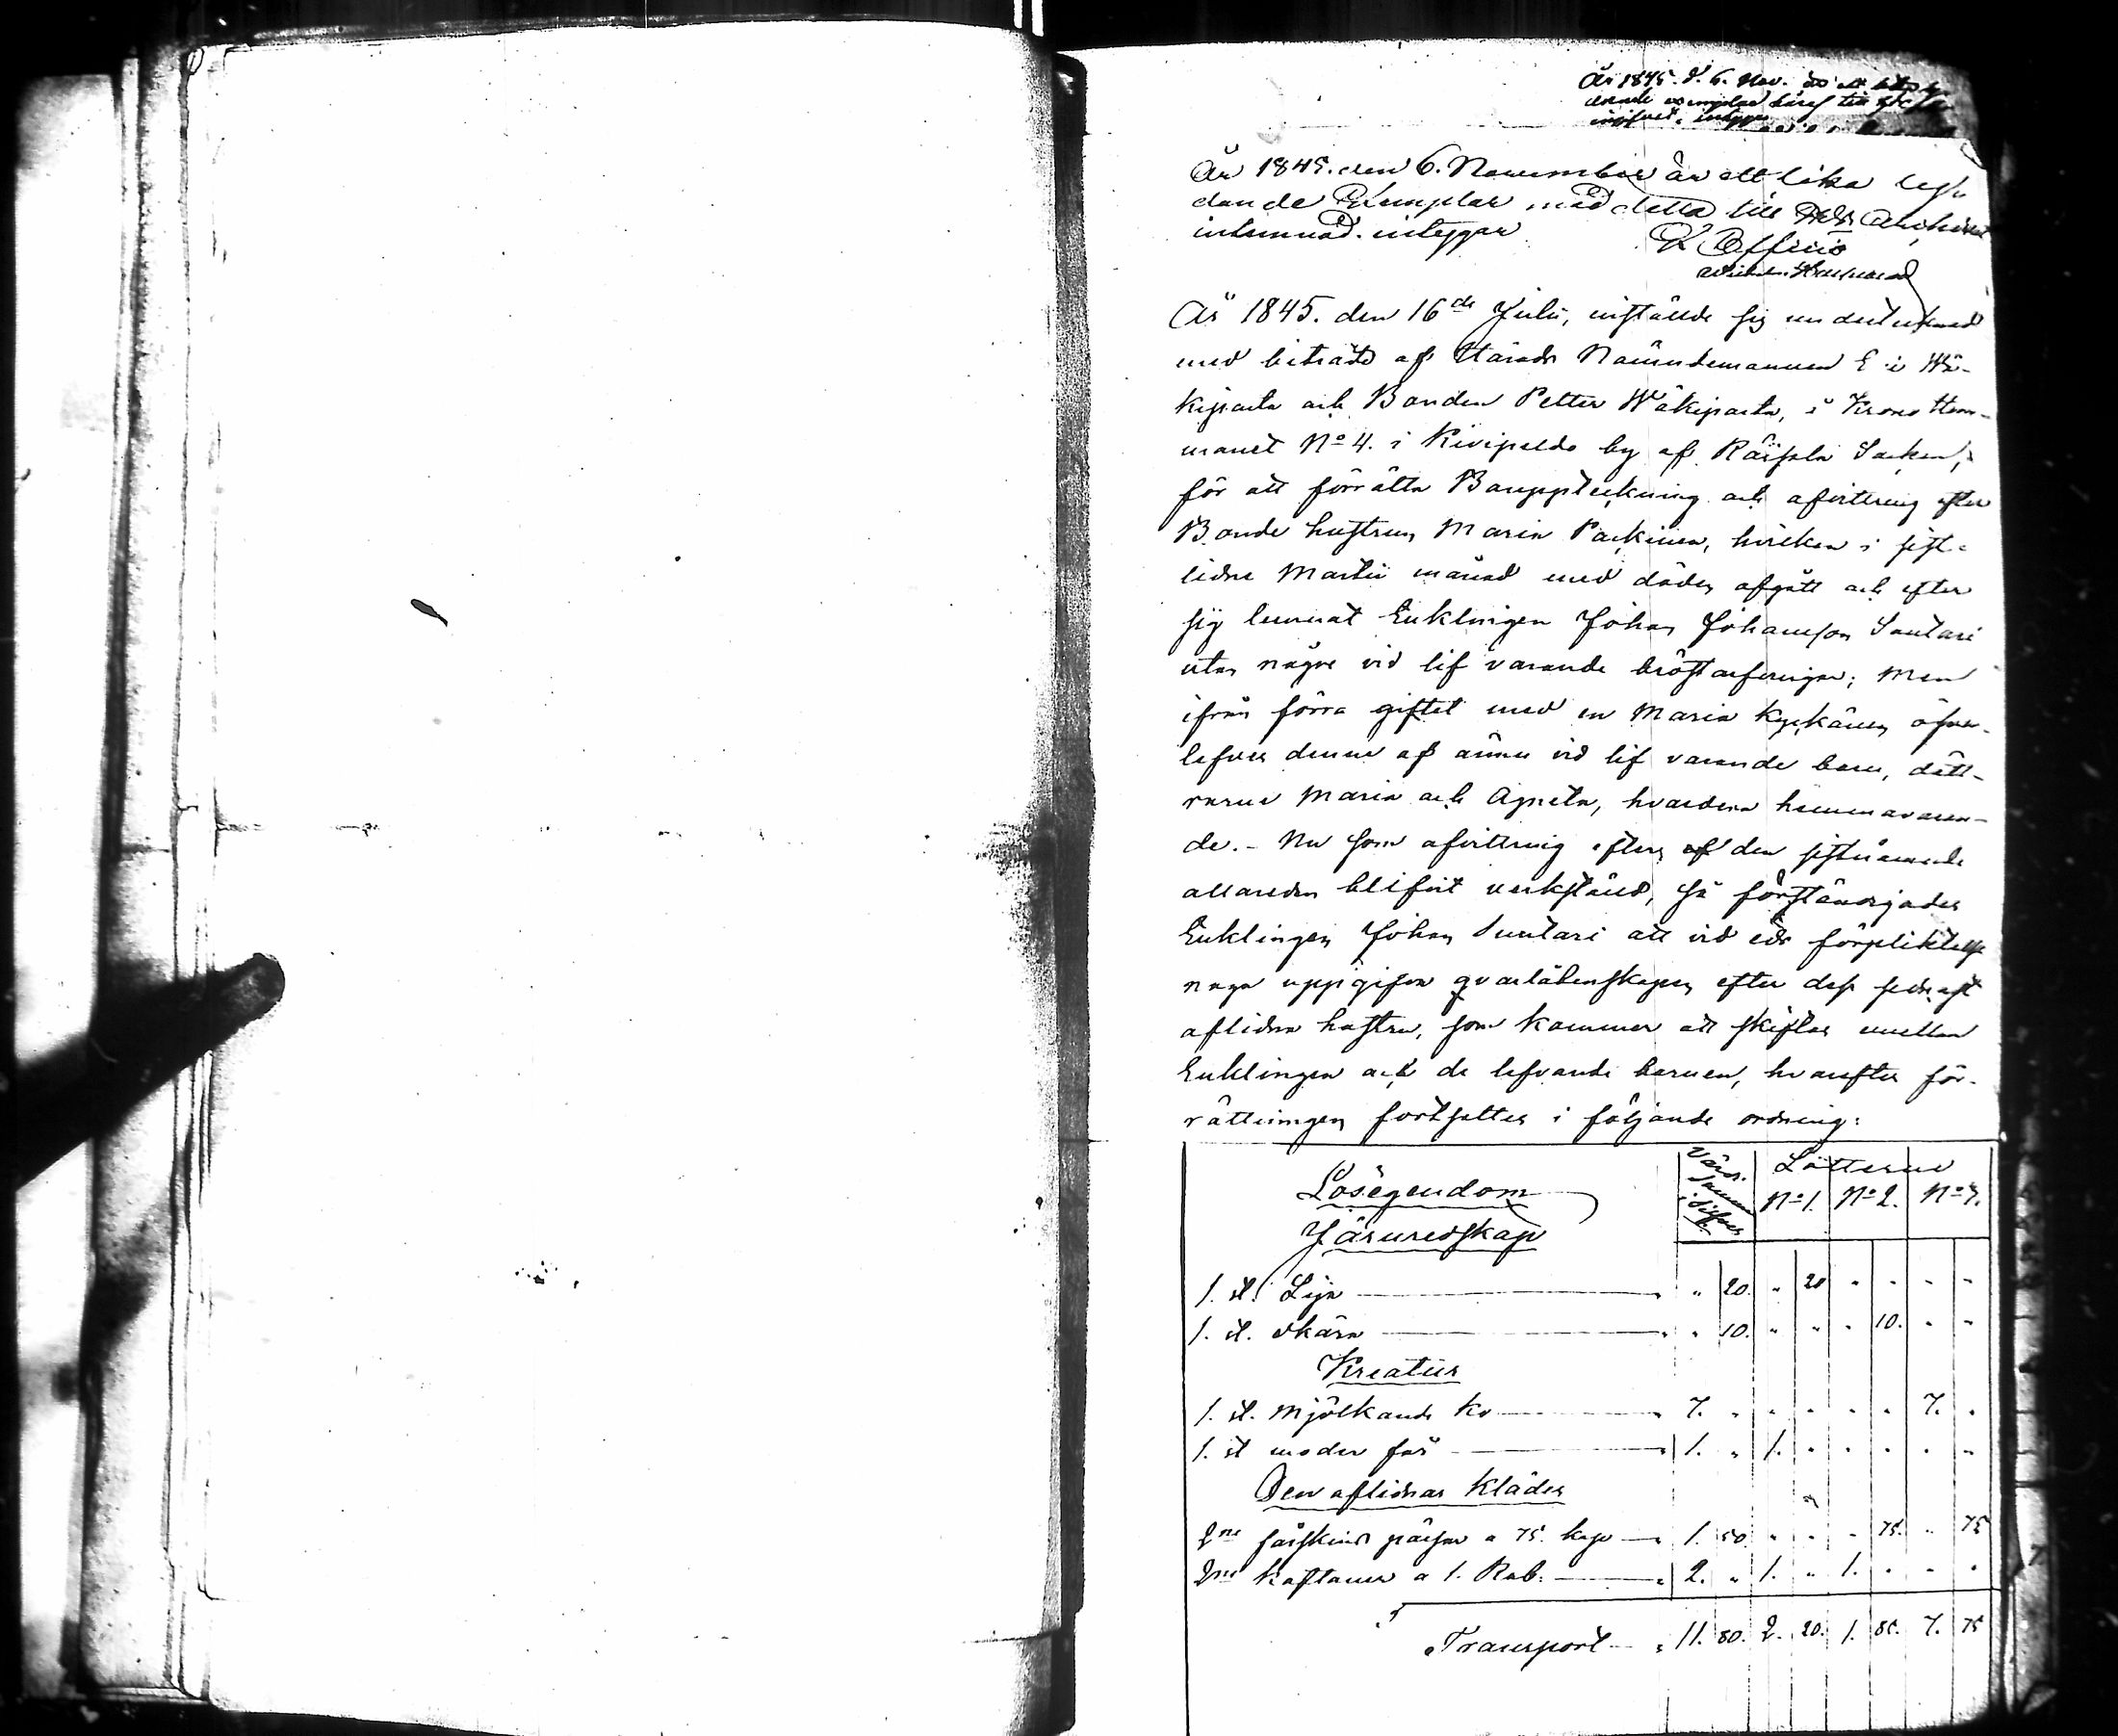 År 1845. d. 6. Nov. är ett lika ly-
dande exemplar häraf till
ingifvet, intygar
År 1845. den 6. November är ett lika lyd
dande Exemplar med detta till Archivet
inlemnad. intygar Ex Officio
År 1845. den 16de Julii, instälde sig undertecknad
med biträde af Härads Nämndemannen E i Wä-
kiparta och Bonden Petter Wäkiparta, i Krono Hem-
manet No 4. i Kivipeldo by af Räisälä Socken,
för att förrätta Bouppteckning och afvittring efter
Bonde hustrun Maria Packinen, hvilken i sist-
lidne Martii månad med döden afgått och efter
sig lemnat Enklingen Johan Johansson Suutari
utan några vid lif varande bröstarfvingar; Men
ifrån förra giftet med en Maria Kyckänen öfver-
lefver denne af ännu vid lif varande barn, dött-
rarne Maria och Agneta, hvardera hemmavaran-
de. - Nu som afvittring efter af den sistnämnde
allaredan blifvit verkstäld, så förständigades
Enklingen Johan Suutari att vid eds förpliktelse
noga uppgifva qvarlåtenskapen efter dess sednast
aflidna hustru, som kommer att skiftas emellan
Enklingen och de lefvande barnen, hvarefter för-
rättningen fortsattes i följande ordning:
Lösegendom Värd. Summa i Silfver Lotterne
No 1. No 2. No 3.
Järnredskap
1. st. Lija " 20. " 20 " " " "
1. st. Skära " 10. " " " 10. " "
Kreatur
1. st. Mjölkande Ko 7. " " " " " 7. "
1. st moder får 1. " 1. " " " " "
Den aflidnas Kläder
2ne fårskinds pälsar a 75. kop 1. 50 " " " 75. " 75
2ne Kaftaner a 1. Rub. 2. " 1. " 1. " " "
Transport 11. 80. 2. 20. 1. 85. 7. 75